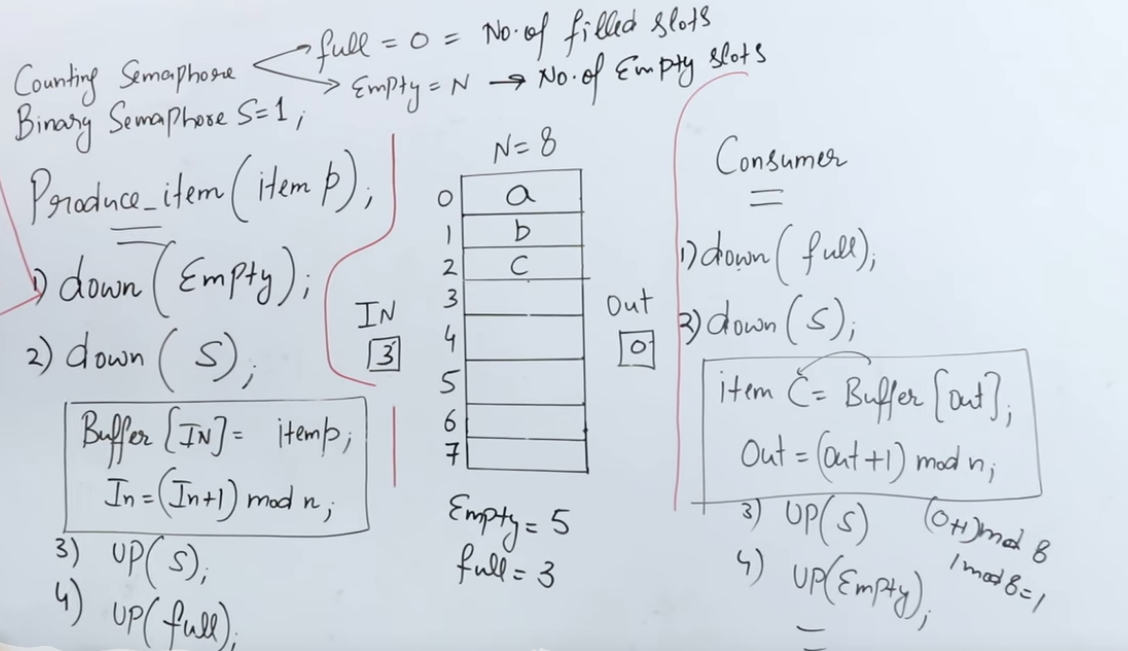 Counting Semaphore
full = 0 = No. of filled slots
Empty = N → No. of Empty slots
Binary Semaphore S=1;
Produce_item(item p);
1) down(Empty);
2) down(S);
Buffer[IN] = itemp;
In=(In+1) mod n;
3) UP(S);
4) UP(full);
IN
3
N=8
0 a
1 b
2 C
3
4
5
6
7
Empty = 5
full = 3
Out
0
Consumer
1) down(full);
2) down(S);
item C = Buffer[out];
Out = (out+1) mod n;
3) UP(S)
4) UP(Empty);
(0+1)mod 8
1 mod 8=1